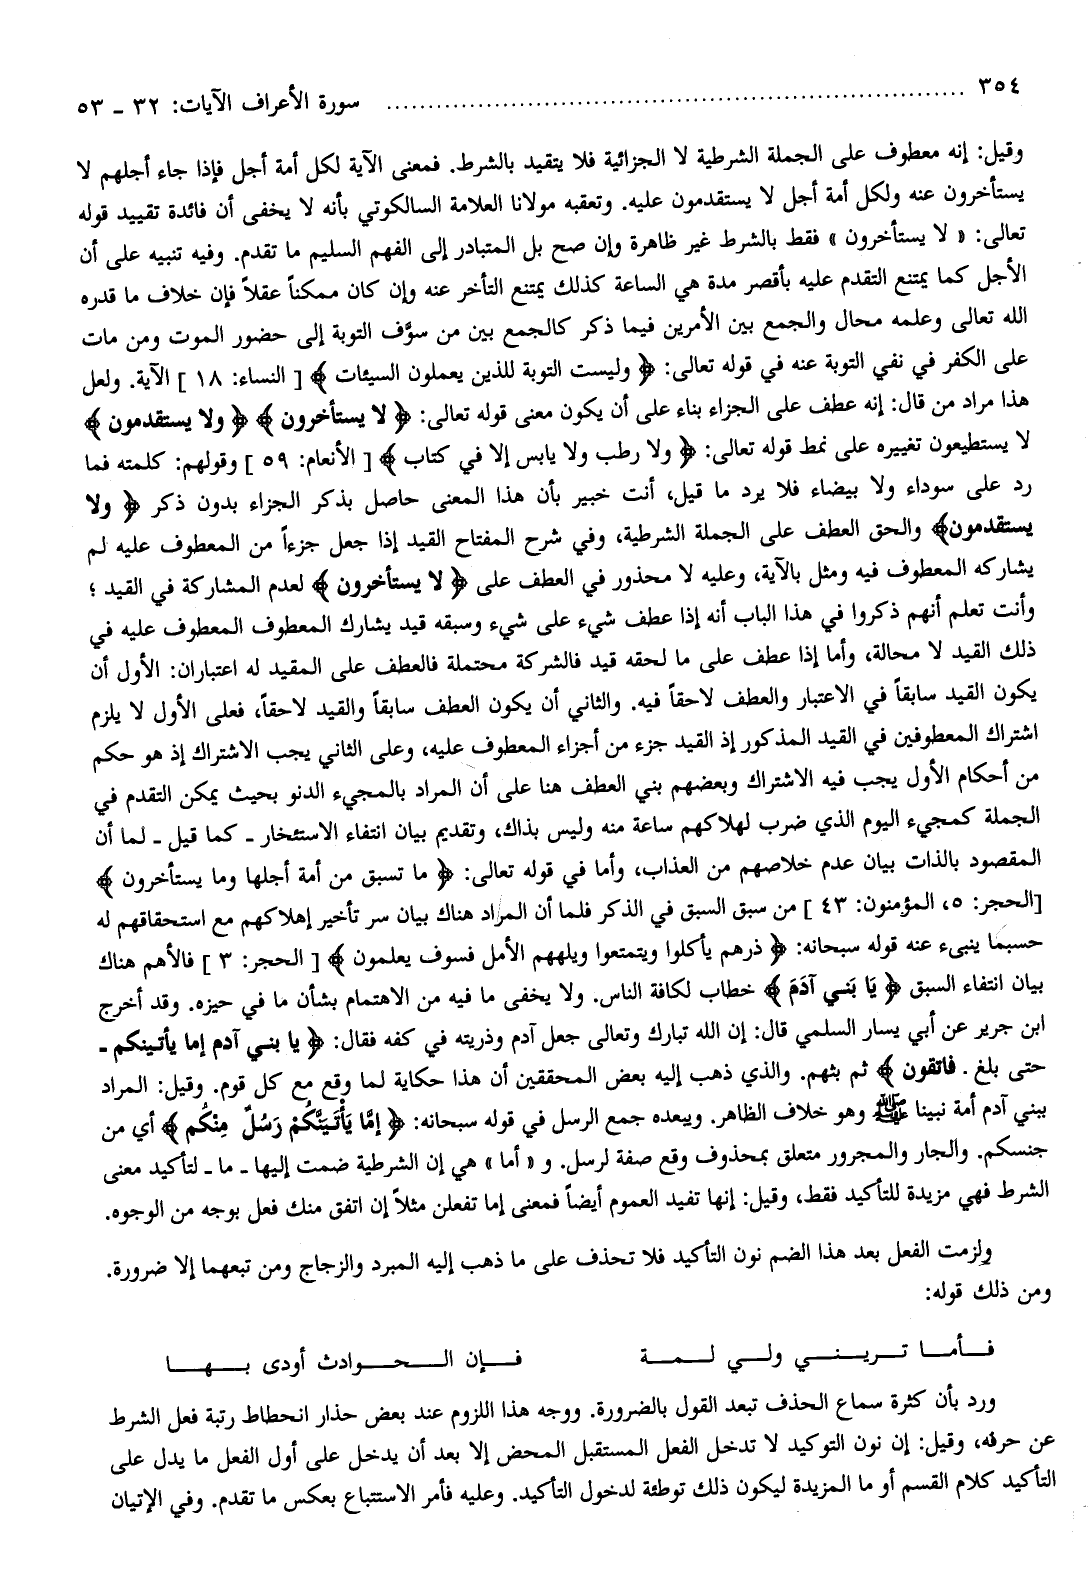 ٣٥٤ ........ سورة الأعراف الآيات: ٣٢ ـ ٥٣
وقيل: إنه معطوف على الجملة الشرطية لا الجزائية فلا يتقيد بالشرط. فمعنى الآية لكل أمة أجل فإذا جاء أجلهم لا
يستأخرون عنه ولكل أمة أجل لا يستقدمون عليه. وتعقبه مولانا العلامة السالكوتي بأنه لا يخفى أن فائدة تقييد قوله
تعالى: « لا يستأخرون » فقط بالشرط غير ظاهرة وإن صح بل المتبادر إلى الفهم السليم ما تقدم. وفيه تنبيه على أن
الأجل كما يمتنع التقدم عليه بأقصر مدة هي الساعة كذلك يمتنع التأخر عنه وإن كان ممكناً عقلاً فإن خلاف ما قدره
الله تعالى وعلمه محال والجمع بين الأمرين فيما ذكر كالجمع بين من سوَّف التوبة إلى حضور الموت ومن مات
على الكفر في نفي التوبة عنه في قوله تعالى: ﴿ وليست التوبة للذين يعملون السيئات ﴾ [ النساء: ١٨ ] الآية. ولعل
هذا مراد من قال: إنه عطف على الجزاء بناء على أن يكون معنى قوله تعالى: ﴿ لا يستأخرون ﴾ ﴿ ولا يستقدمون ﴾
لا يستطيعون تغييره على نمط قوله تعالى: ﴿ ولا رطب ولا يابس إلا في كتاب ﴾ [ الأنعام: ٥٩ ] وقولهم: كلمته فما
رد على سوداء ولا بيضاء فلا يرد ما قيل، أنت خبير بأن هذا المعنى حاصل بذكر الجزاء بدون ذكر ﴿ ولا
يستقدمون﴾ والحق العطف على الجملة الشرطية، وفي شرح المفتاح القيد إذا جعل جزءاً من المعطوف عليه لم
يشاركه المعطوف فيه ومثل بالآية، وعليه لا محذور في العطف على ﴿ لا يستأخرون ﴾ لعدم المشاركة في القيد ؛
وأنت تعلم أنهم ذكروا في هذا الباب أنه إذا عطف شيء على شيء وسبقه قيد يشارك المعطوف المعطوف عليه في
ذلك القيد لا محالة، وأما إذا عطف على ما لحقه قيد فالشركة محتملة فالعطف على المقيد له اعتباران: الأول أن
يكون القيد سابقاً في الاعتبار والعطف لاحقاً فيه. والثاني أن يكون العطف سابقاً والقيد لاحقاً، فعلى الأول لا يلزم
اشتراك المعطوفين في القيد المذكور إذ القيد جزء من أجزاء المعطوف عليه، وعلى الثاني يجب الاشتراك إذ هو حكم
من أحكام الأول يجب فيه الاشتراك وبعضهم بني العطف هنا على أن المراد بالمجيء الدنو بحيث يمكن التقدم في
الجملة كمجيء اليوم الذي ضرب لهلاكهم ساعة منه وليس بذاك، وتقديم بيان انتفاء الاستئخار ـ كما قيل ـ لما أن
المقصود بالذات بيان عدم خلاصهم من العذاب، وأما في قوله تعالى: ﴿ ما تسبق من أمة أجلها وما يستأخرون ﴾
[الحجر: ٥، المؤمنون: ٤٣ ] من سبق السبق في الذكر فلما أن المراد هناك بيان سر تأخير إهلاكهم مع استحقاقهم له
حسبما ينبىء عنه قوله سبحانه: ﴿ ذرهم يأكلوا ويتمتعوا ويلههم الأمل فسوف يعلمون ﴾ [ الحجر: ٣ ] فالأهم هناك
بيان انتفاء السبق ﴿ يَا بَني آدَمَ ﴾ خطاب لكافة الناس. ولا يخفى ما فيه من الاهتمام بشأن ما في حيزه. وقد أخرج
ابن جرير عن أبي يسار السلمي قال: إن الله تبارك وتعالى جعل آدم وذريته في كفه فقال: ﴿ يا بني آدم إما يأتينكم ـ
حتى بلغ ـ فاتقون ﴾ ثم بثهم. والذي ذهب إليه بعض المحققين أن هذا حكاية لما وقع مع كل قوم. وقيل: المراد
ببني آدم أمة نبينا ﷺ وهو خلاف الظاهر. ويبعده جمع الرسل في قوله سبحانه: ﴿ إمَّا يَأْتِيَنَّكُمْ رَسُلٌ مِنْكُم ﴾ أي من
جنسكم. والجار والمجرور متعلق بمحذوف وقع صفة لرسل. و « أما » هي إن الشرطية ضمت إليها ـ ما ـ لتأكيد معنى
الشرط فهي مزيدة للتأكيد فقط، وقيل: إنها تفيد العموم أيضاً فمعنى إما تفعلن مثلاً إن اتفق منك فعل بوجه من الوجوه.
ولزمت الفعل بعد هذا الضم نون التأكيد فلا تحذف على ما ذهب إليه المبرد والزجاج ومن تبعهما إلا ضرورة.
ومن ذلك قوله:
فـأمـا تـريـنـي ولـي لـمـة فـإن الـحـوادث أودى بـهـا
ورد بأن كثرة سماع الحذف تبعد القول بالضرورة. ووجه هذا اللزوم عند بعض حذار انحطاط رتبة فعل الشرط
عن حرفه، وقيل: إن نون التوكيد لا تدخل الفعل المستقبل المحض إلا بعد أن يدخل على أول الفعل ما يدل على
التأكيد كلام القسم أو ما المزيدة ليكون ذلك توطئة لدخول التأكيد. وعليه فأمر الاستتباع بعكس ما تقدم. وفي الإتيان